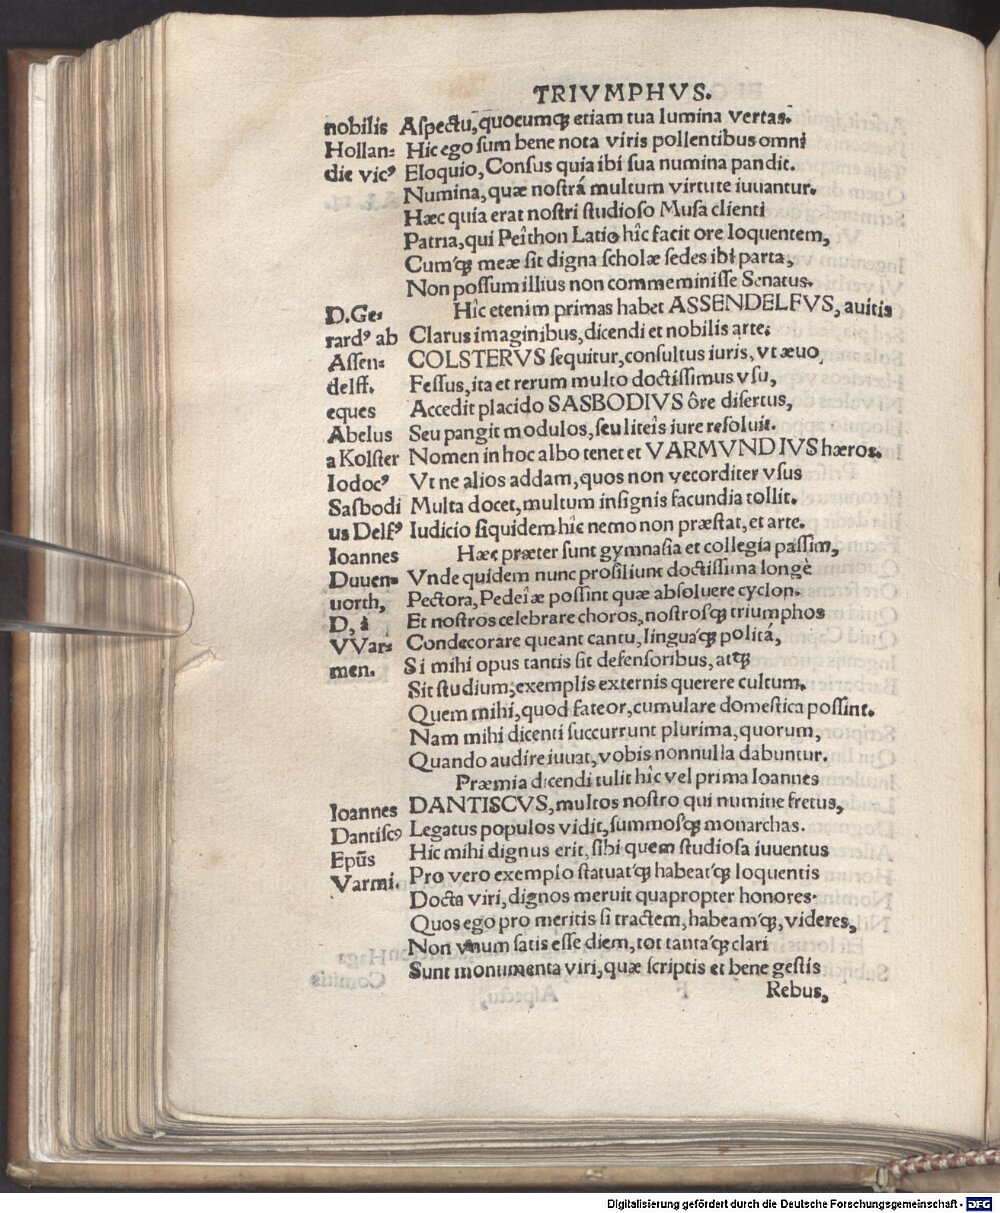 TRIVMPHVS.
nobilis
Hollan:
die vicꝰ
Aſpectu, quocumqꝫ etiam tua lumina vertas.
Hic ego ſum bene nota viris pollentibus omni
Eloquio, Conſus quia ibi ſua numina pandit.
Numina, quæ noſtrá multum virtute iuuantur.
Hæc quia erat noſtri ſtudioſo Muſa clienti
Patria, qui Peîthon Latio hîc facit ore loquentem,
Cum'qꝫ meæ ſit digna ſcholæ ſedes ibi parta,
Non poſſum illius non commeminiſſe Senatus.
D. Ge-
rardꝰ ab
Aſſen:
delff.
eques
Abelus
a Kolſter
Iodocꝰ
Sasbodi
us Delfꝰ
Ioannes
Duuen-
uorth,
D, à
VVar-
men.
Hîc etenim primas habet ASSENDELFVS, auitis
Clarus imaginibus, dicendi et nobilis arte.
COLSTERVS ſequitur, conſultus iuris, vt æuo,
Feſſus, ita et rerum multo doctiſſimus vſu,
Accedit placido SASBODIVS ôre diſertus,
Seu pangit modulos, ſeu liteîs iure reſoluit.
Nomen in hoc albo tenet et VARMVNDIVS hæros.
Vt ne alios addam, quos non vecorditer vſus
Multa docet, multum inſignis facundia tollit.
Iudicio ſiquidem hîc nemo non præſtat, et arte.
Hæc præter ſunt gymnaſia et collegia paſſim,
Vnde quidem nunc proſiliunt doctiſſima longè
Pectora, Pedeîæ poſſint quæ abſoluere cyclon.
Et noſtros celebrare choros, noſtroſ'qꝫ triumphos
Condecorare queant cantu, lingua'qꝫ politá,
Si mihi opus tantis ſit defenſoribus, atqꝫ
Sit ſtudium; exemplis externis querere cultum.
Quem mihi, quod fateor, cumulare domeſtica poſſint.
Nam mihi dicenti ſuccurrunt plurima, quorum,
Quando audire iuuat, vobis nonnulla dabuntur.
Præmia dicendi tulit hîc vel prima Ioannes
Ioannes
Dantiſcꝰ
Epũs
Varmi.
DANTISCVS, multos noſtro qui numine fretus,
Legatus populos vidit, ſummoſ'qꝫ monarchas.
Hic mihi dignus erit, ſibi quem ſtudioſa iuuentus
Pro vero exemplo ſtatuat'qꝫ habeat'qꝫ loquentis
Docta viri, dignos meruit quapropter honores.
Quos ego pro meritis ſi tractem, habeam'qꝫ, videres,
Non vnum ſatis eſſe diem, tot tanta'qꝫ clari
Sunt monumenta viri, quæ ſcriptis et bene geſtis
Rebus,
Digitalisierung gefördert durch die Deutsche Forschungsgemeinschaft - DFG